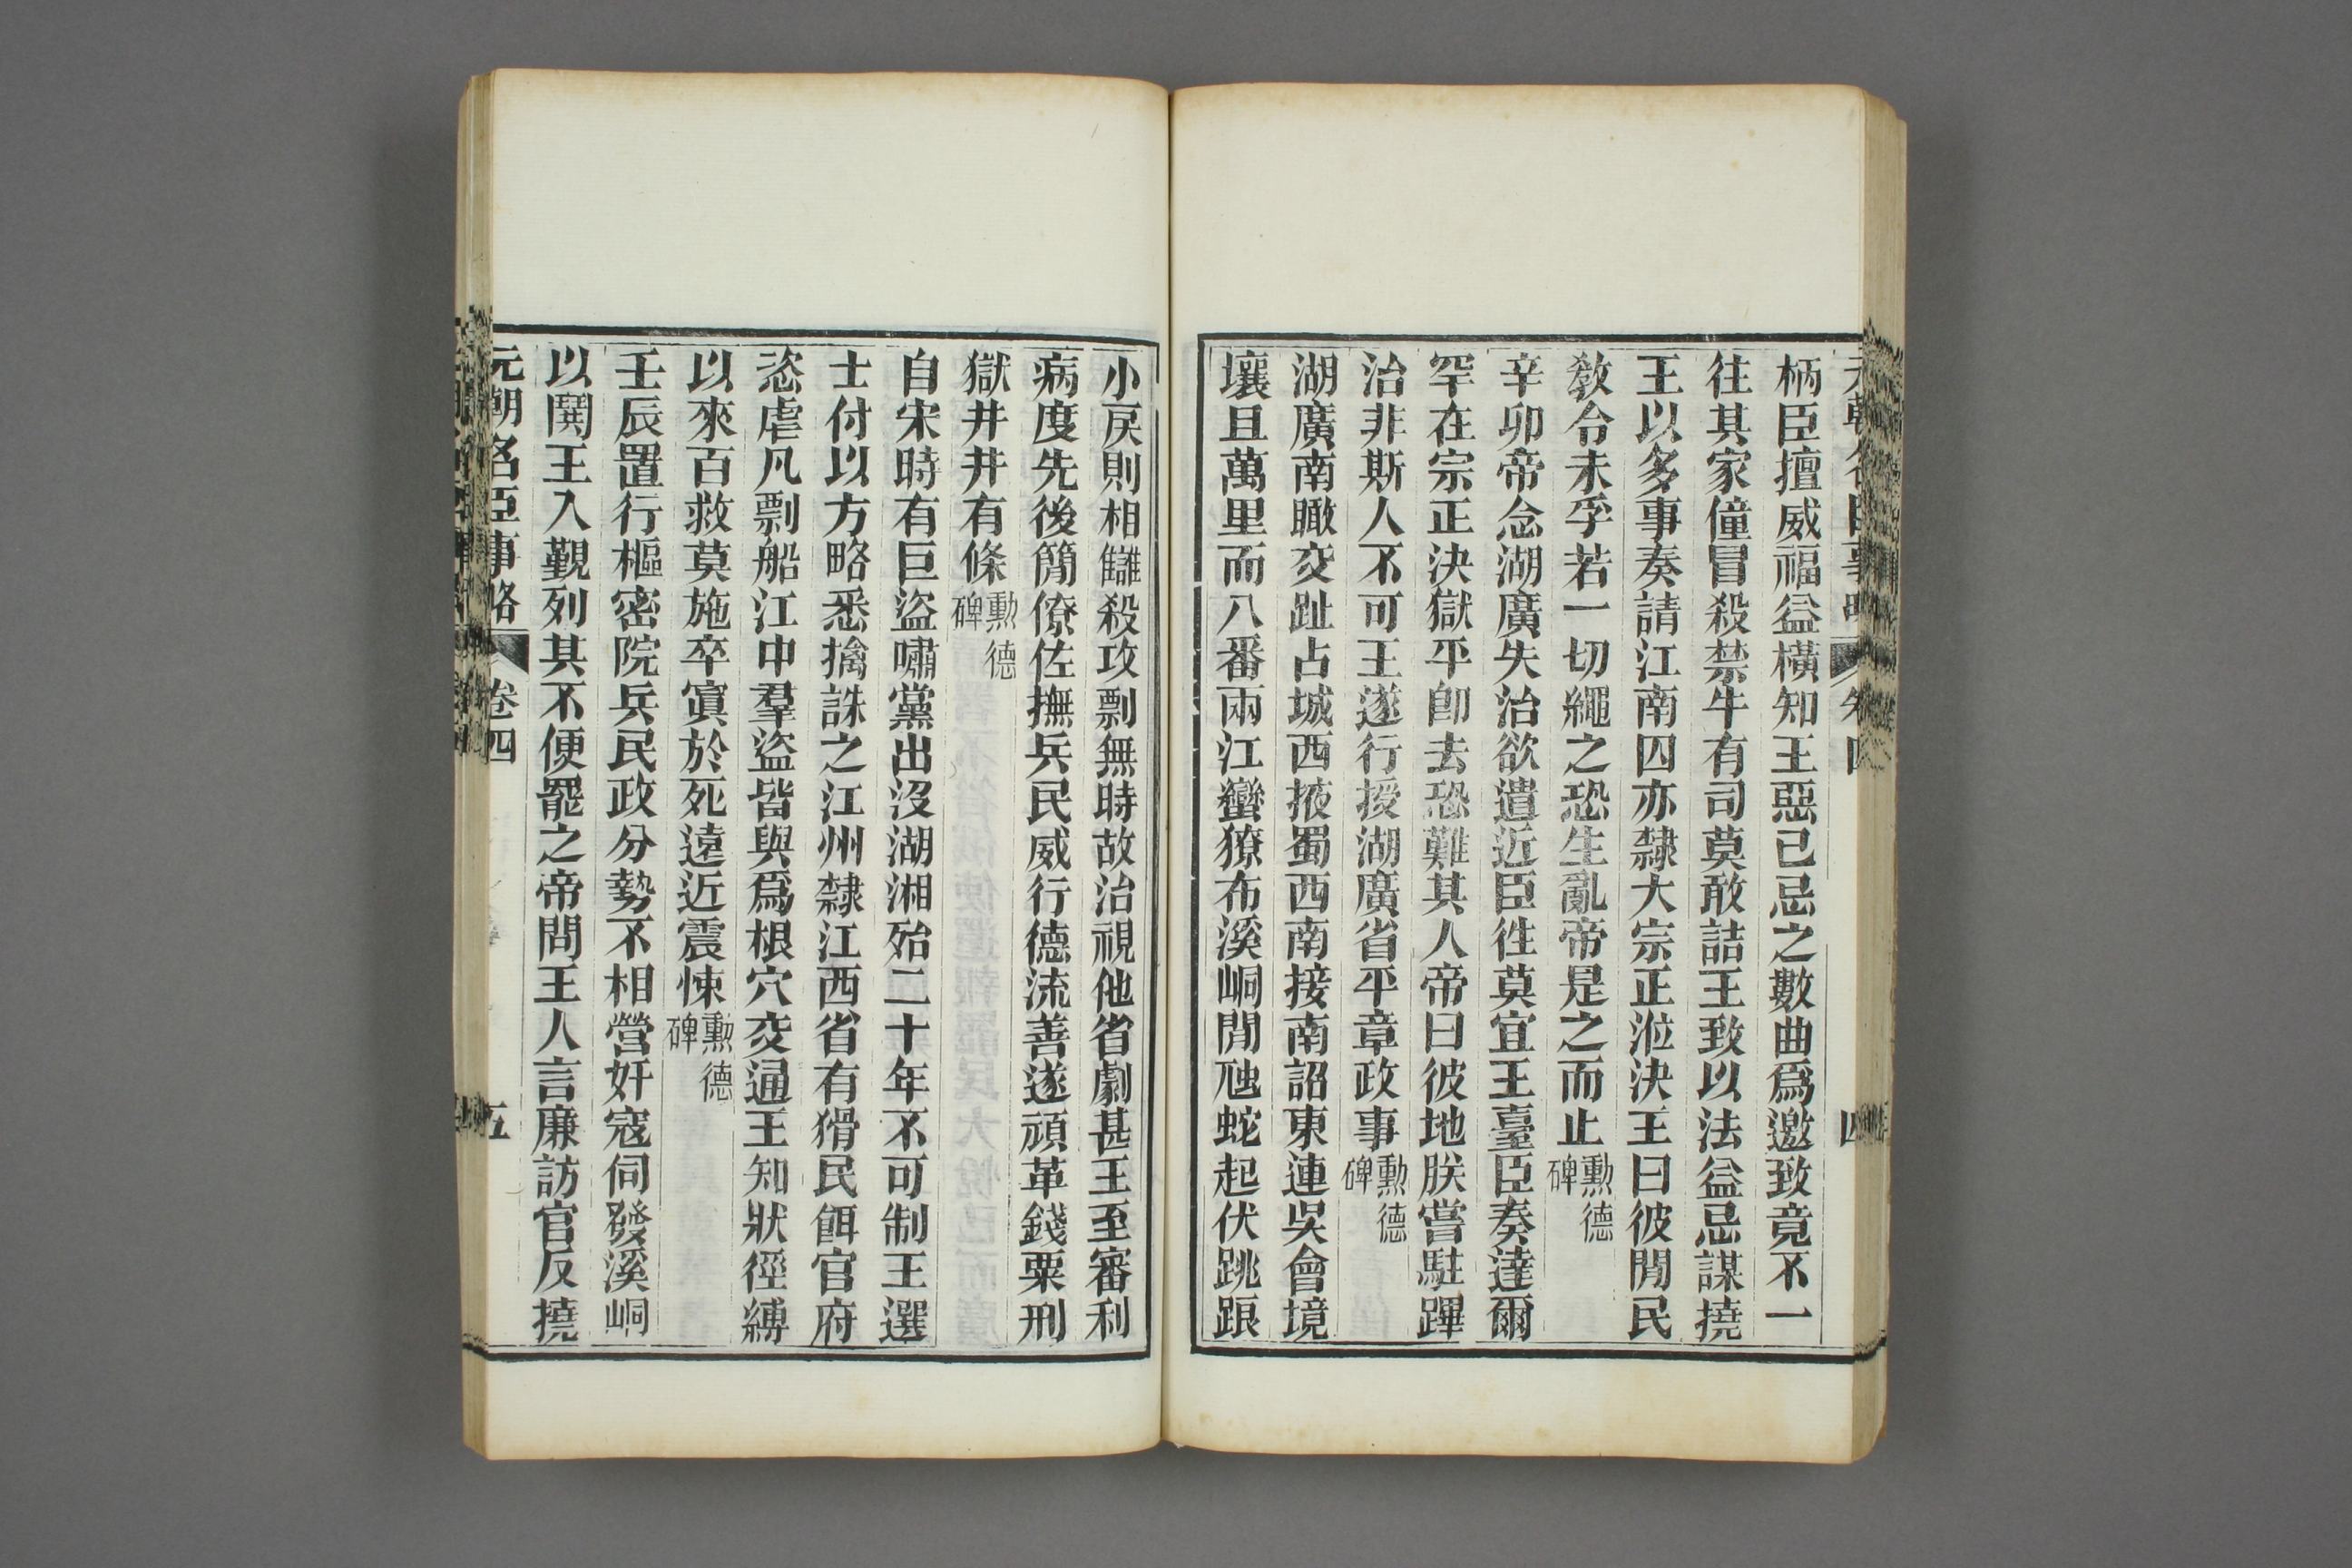 柄臣擅威福益橫知王惡已忌之數曲爲邀致竟不一
往其家僮冒殺禁牛有司莫敢詰王致以法益忌謀撓
王以多事奏請江南囚亦隸大宗正涖決王曰彼閒民
敎令未孚若一切繩之恐生亂帝是之而止勳德碑
辛卯帝念湖廣失治欲遣近臣徃莫宜王臺臣奏達爾
罕在宗正決獄平卽去恐難其人帝曰彼地朕嘗駐蹕
治非斯人不可王遂行授湖廣省平章政事勳德碑
湖廣南瞰交趾占城西掖蜀西南接南詔東連吳會境
壤且萬里而八番兩江蠻獠布溪峒閒虺蛇起伏跳踉
小戾則相讎殺攻剽無時故治視他省劇甚王至審利
病度先後簡僚佐撫兵民威行德流善遂頑革錢粟刑
獄井井有條勳德碑
自宋時有巨盜嘯黨出沒湖湘殆二十年不可制王選
士付以方略悉擒誅之江州隸江西省有猾民餌官府
恣虐凡剽船江中羣盜皆與爲根穴交通王知狀徑縛
以來百救莫施卒寘於死遠近震悚勳德碑
壬辰置行樞密院兵民政分勢不相營奸寇伺發溪峒
以鬨王入覲列其不便罷之帝問王人言廉訪官反撓
元朝名臣事略 卷四 五